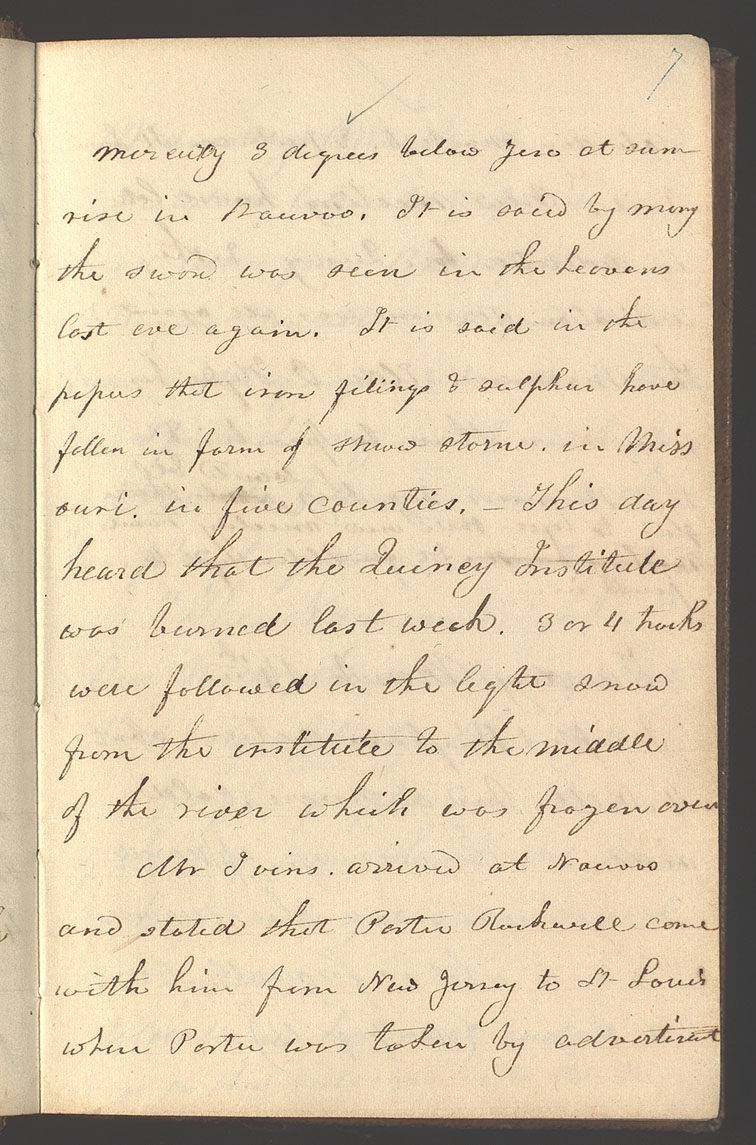 7
Mercury 3 degrees below Zero at sun-
rise in Nauvoo. It is said by many
the sword was seen in the heavens
last eve again. It is said in the
papers that iron filings & sulphur have
fallen in form of snow storm. in Miss
ouri. in five counties. — This day
heard that the Quincy Institute
was burned last week. 3 or 4 tracks
were followed in the light snow
from the institute to the middle
of the river which was frozen over
Mr Ivins. arrived at Nauvoo
and stated that Porter Rockwell come
with him from New Jersey to St Louis
when Porter was taken by advertisent